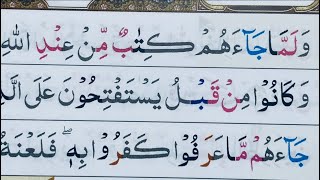 وَلَمَّا جَآءَهُمْ كِتٰبٌ مِّنْ عِنْدِ اللّٰهِ
وَكَانُوْا مِنْ قَبْلُ يَسْتَفْتِحُوْنَ عَلَى
جَآءَهُمْ مَّا عَرَفُوْا كَفَرُوْا بِهٖ ۖ فَلَعْنَةُ